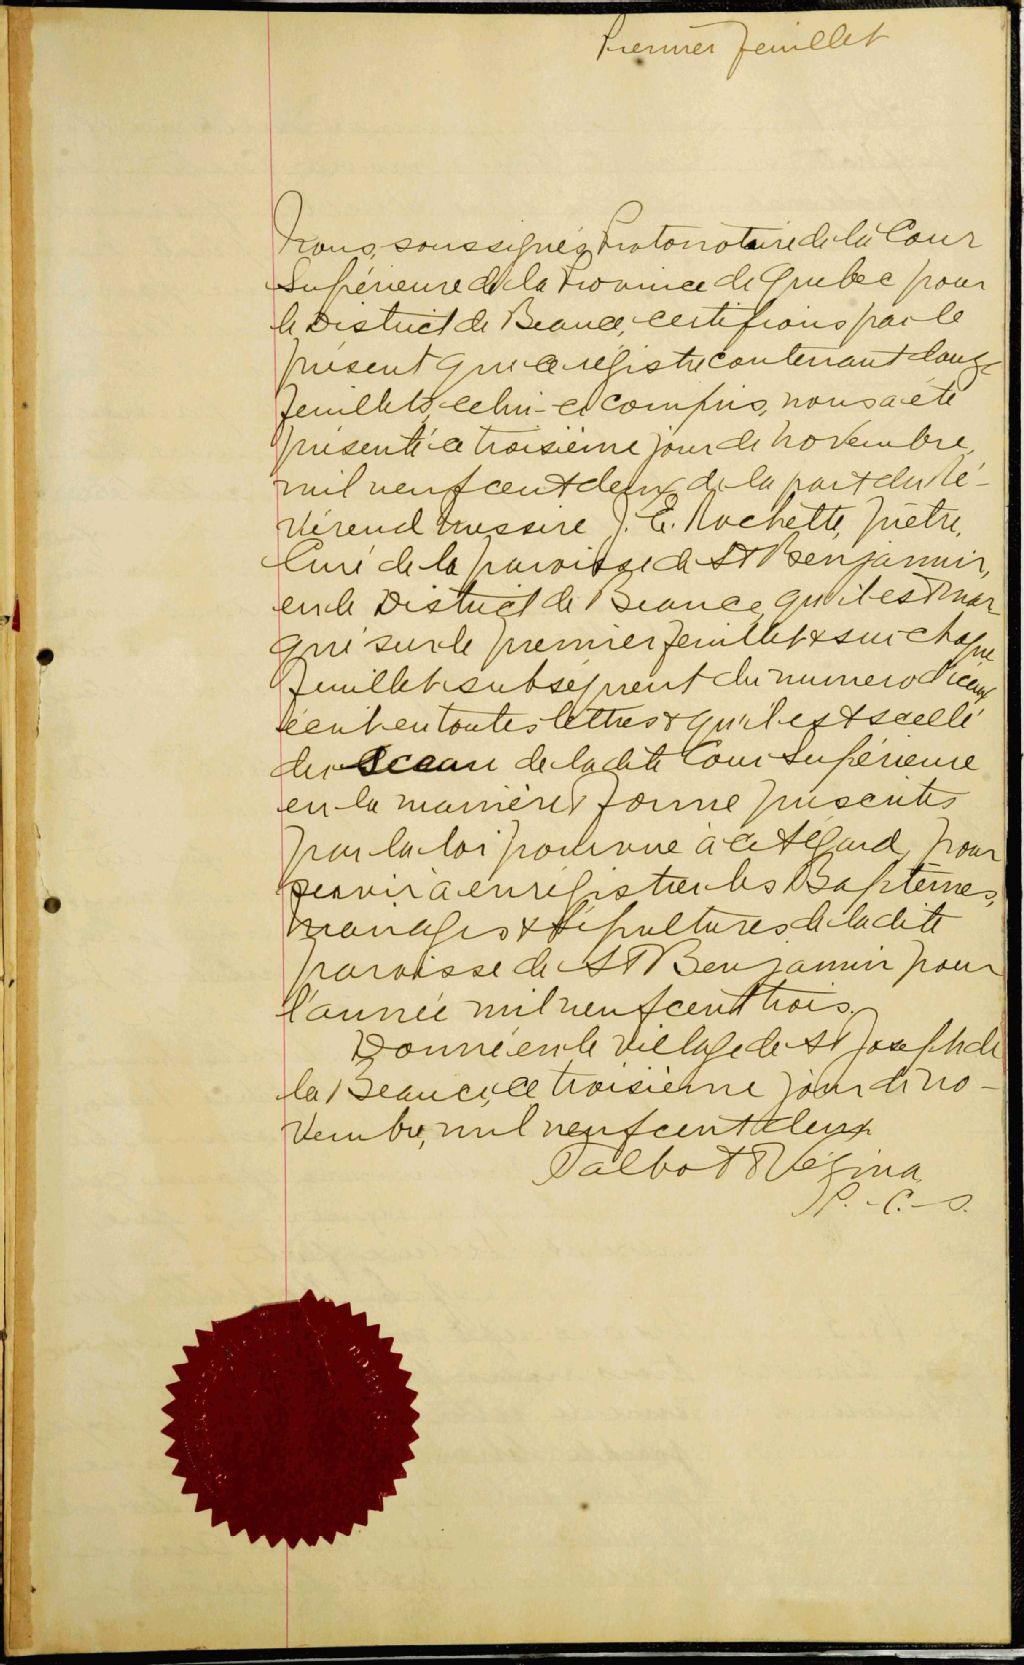 Premier feuillet
Nous, soussignés, Protonotaire de la Cour
Supérieure de la Province de Quebec pour
le District de Beauce, certifions par le
présent que ce régistre contenant douze
feuillets, celui-ci compris, nous a été
présenté ce troisième jour de novembre,
mil neuf cent deux, de la part du Ré-
vérend Messire J. E. Rochette, prêtre,
Curé de la paroisse de St Benjamin,
en le District de Beauce, qu'il est mar
qué sur le premier feuillet & sur chaque
feuillet subséquent du numero d'iceux
écrit en toutes lettres & qu'il est scellé
du Sceau de la dite Cour Supérieure
en la manière & forme prescrites
par la loi pourvue à cet égard, pour
servir à enrégistrer les Baptêmes,
mariages & Sépultures de la dite
paroisse de St Benjamin pour
l'année mil neuf cent trois.
Donné en le village de St Joseph de
la Beauce, ce troisième jour de no-
vembre, mil neuf cent deux
Talbot & Vézina
P.-C.-S.